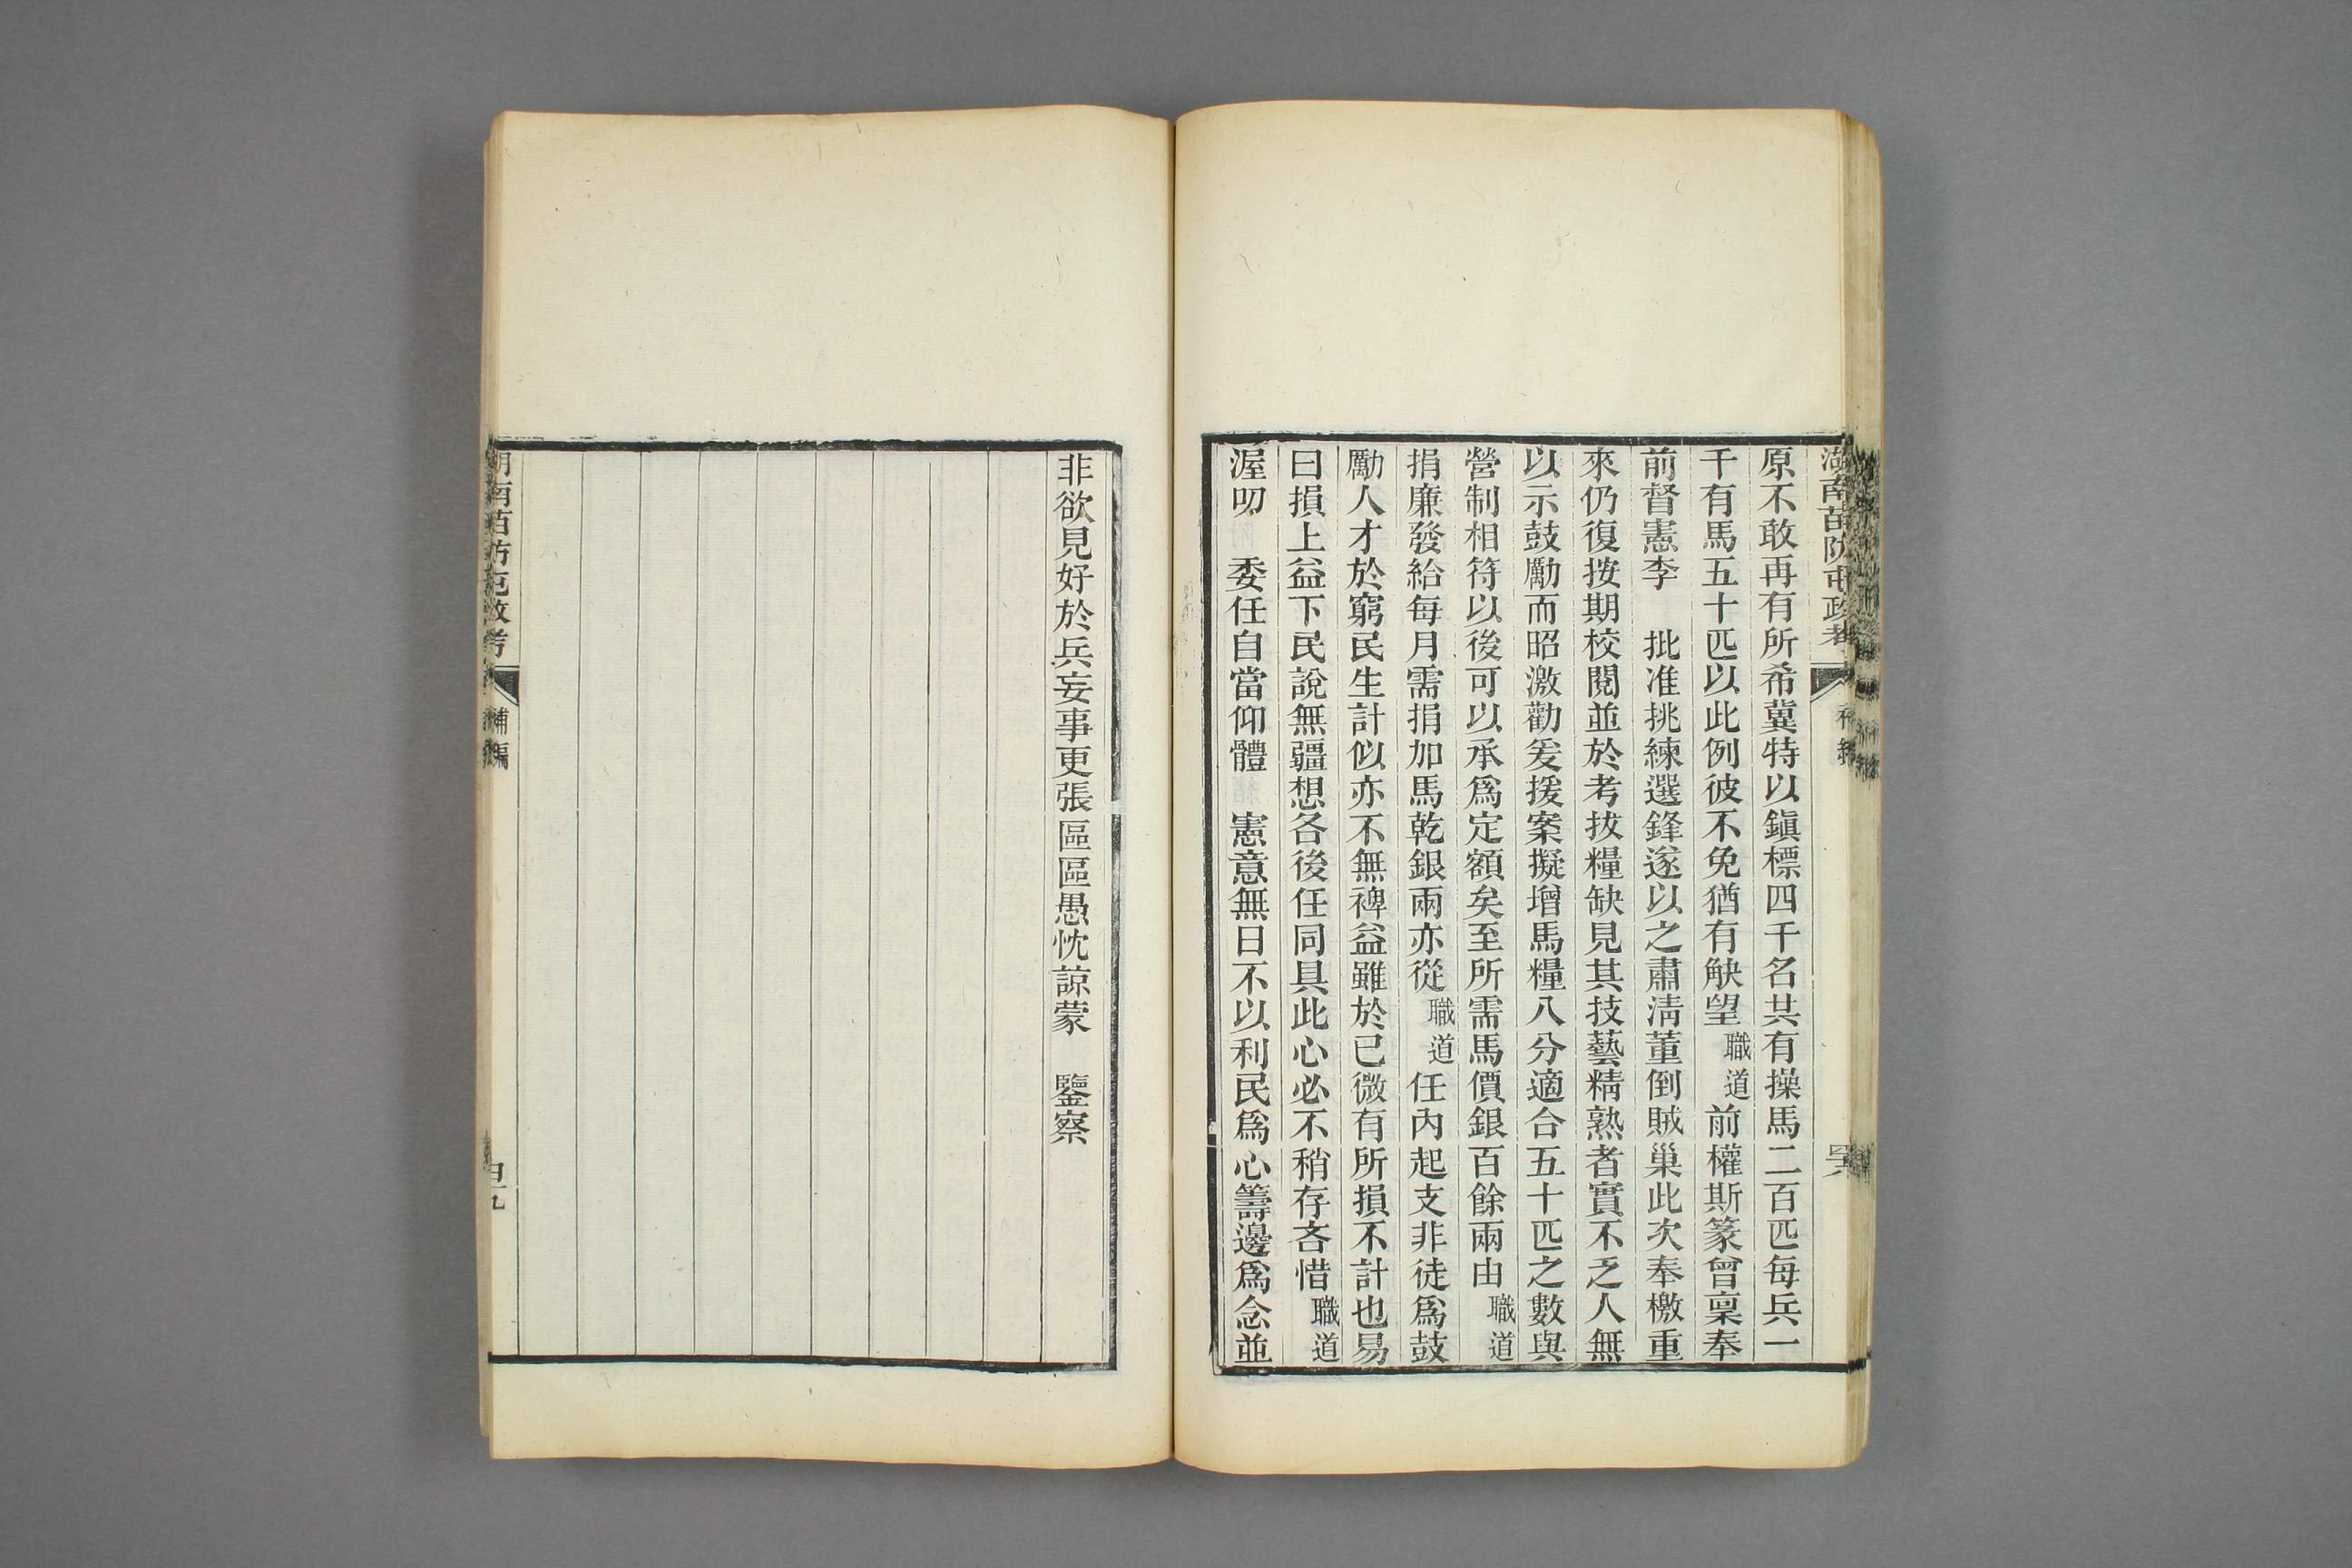 湖南苗防屯政考
補編
原不敢再有所希冀特以鎮標四千名共有操馬二百匹每兵一
千有馬五十匹以此例彼不免猶有觖望職道前權斯篆曾稟奉
前督憲李　批准挑練選鋒遂以之肅淸董倒賊巢此次奉檄重
來仍復按期校閱並於考拔糧缺見其技藝精熟者實不乏人無
以示鼓勵而昭激勸爰援案擬增馬糧八分適合五十匹之數與
營制相符以後可以承爲定額矣至所需馬價銀百餘兩由職道
捐廉發給每月需捐加馬乾銀兩亦從職道任內起支非徒爲鼓
勵人才於窮民生計似亦不無裨益雖於已微有所損不計也易
曰損上益下民說無疆想各後任同具此心必不稍存吝惜職道
渥叨　委任自當仰體　憲意無日不以利民爲心籌邊爲念並
非欲見好於兵妄事更張區區愚忱諒蒙　鑒察
湖南苗防屯政考
補編